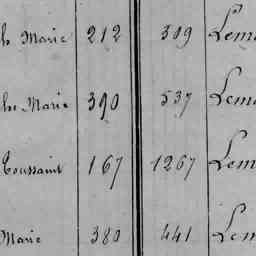 Marie 212 309 Lem
Marie 390 537 Lem
Toussaint 167 1267 Lem
Marie 380 441 Lem